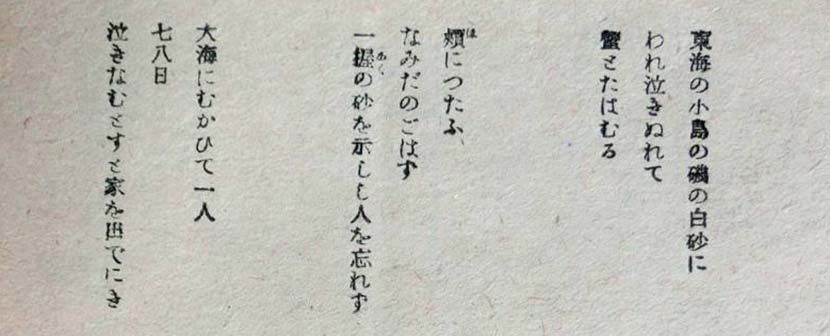 東海の小島の磯の白砂に
われ泣きぬれて
蟹とたはむる
頬につたふ
なみだのごはず
一握の砂を示しし人を忘れず
大海にむかひて一人
七八日
泣きなむとすと家を出でにき